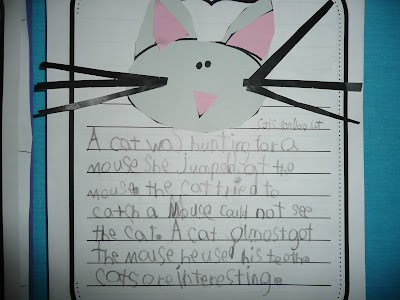 Cats can Doo lot
A cat was hunting for a
mouse She jumped at the
mouse. the cat tried to
catch a Mouse could not see
the cat. A cat almost got
The mouse he used his teeth.
cats are interesting.